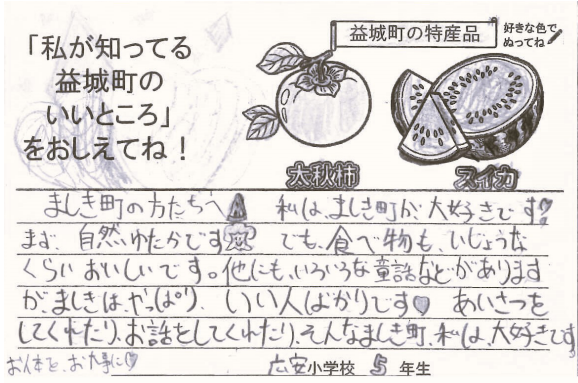 「私が知ってる
益城町の
いいところ」
をおしえてね！
益城町の特産品
好きな色で
ぬってね
太秋柿
スイカ
ましき町の方たちへ 私は、ましき町が、大好きです
まず、自然ゆたかです でも、食べ物も、いじょうな
くらいおいしいです。他にも、いろいろな童話などがあります
が、ましきは、やっぱり、いい人ばかりです♡ あいさつを
してくれたり、お話をしてくれたり、そんなましき町、私は、大好きです
お体を、お大事に♡
広安小学校 5 年生